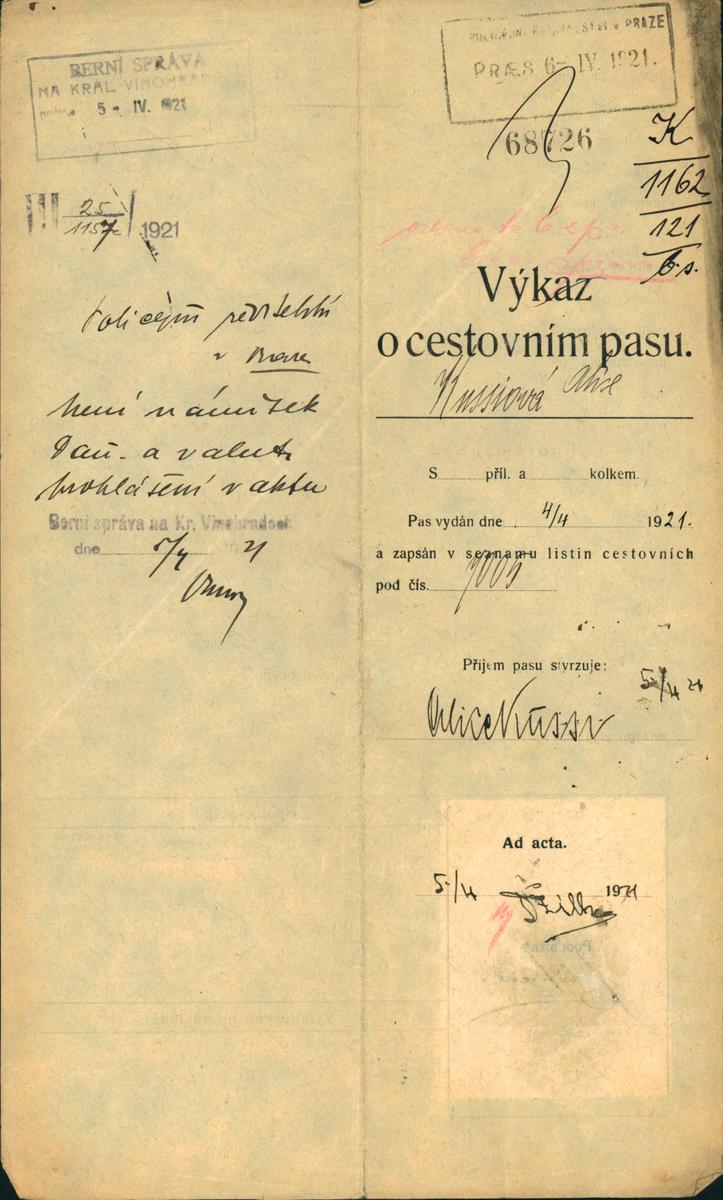 BERNÍ SPRÁVA
NA KRÁL. VINOHRA
5 - IV. 1921
III 25/1157 1921
Policejní ředitelství
v Praze
není námitek
Daň. a valut.
prohlášení v aktu
Berní správa na Kr. Vinohradech
dne 5/4 21
V PRAZE
PRÆS 6- IV. 1921.
68726
K
1162
121
6.s.
Výkaz
o cestovním pasu.
Kussiová Alice
S příl. a kolkem.
Pas vydán dne 4/4 1921.
a zapsán v seznamu listin cestovních
pod čís.
Příjem pasu stvrzuje:
5/4 21
Alice Kussi
Ad acta.
5/4 1921